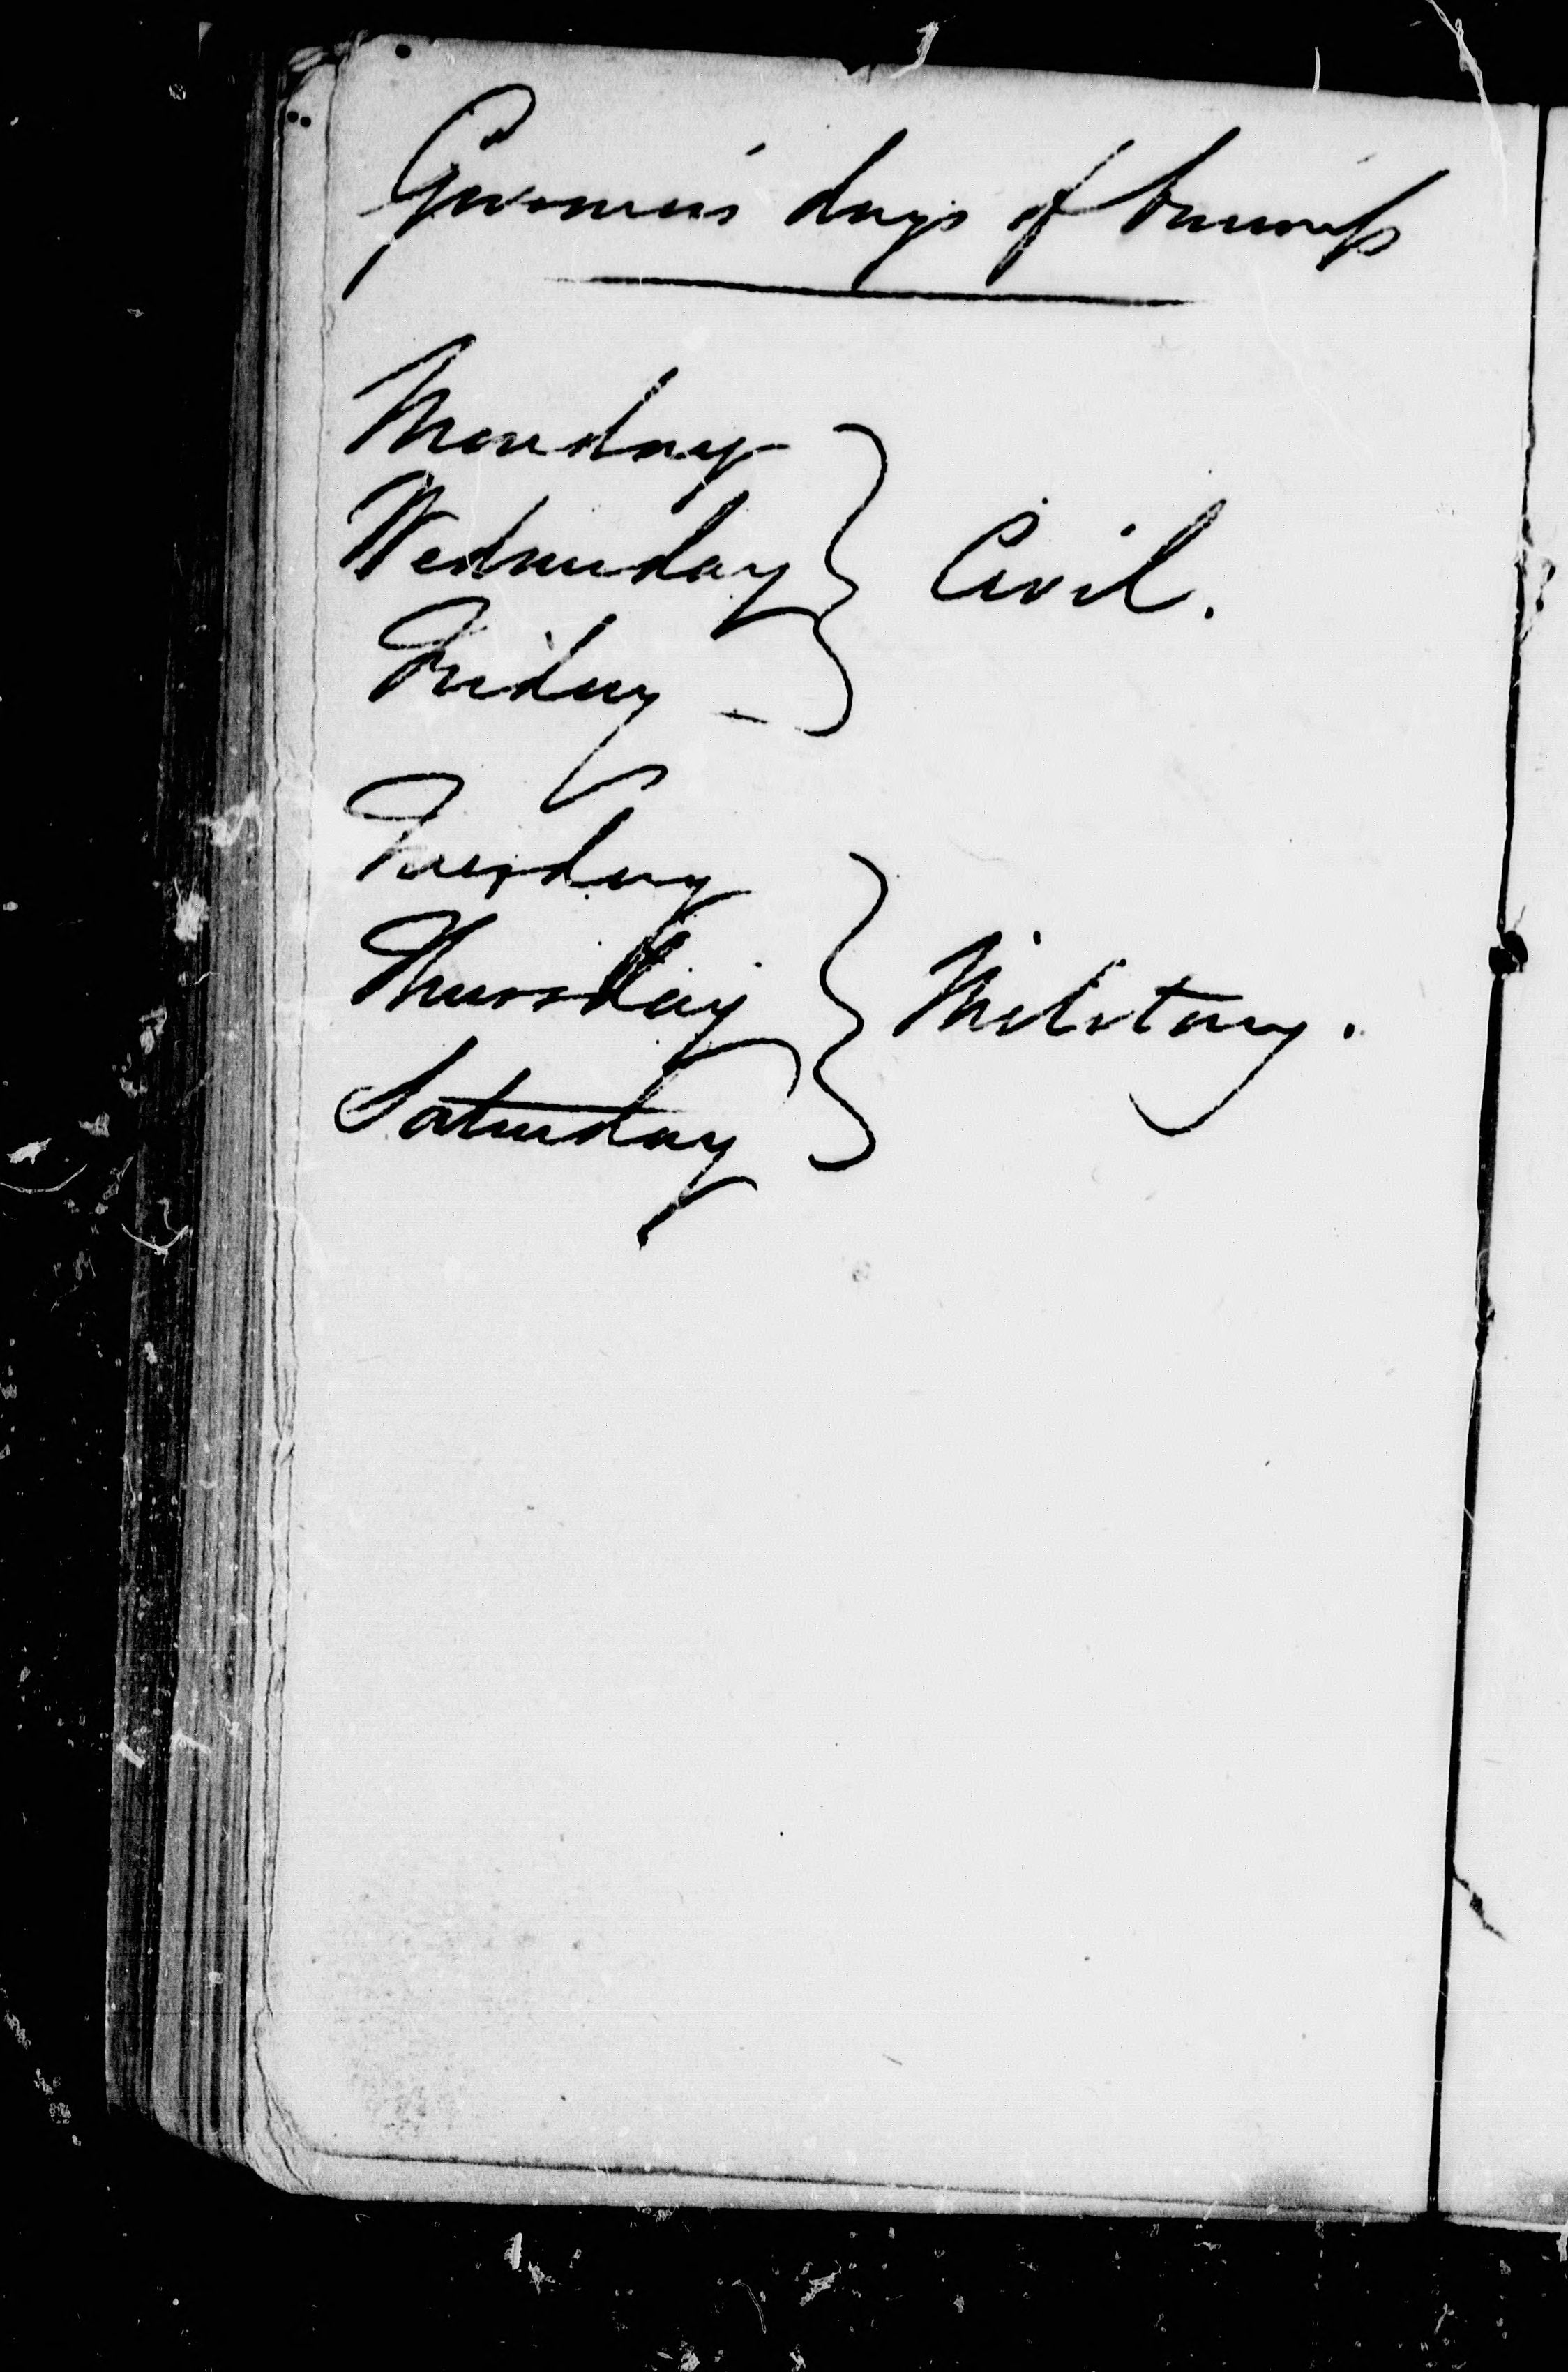 Governor's days of business
Monday
Wednesday } Civil.
Friday -
Tuesday
Thursday } Military.
Saturday